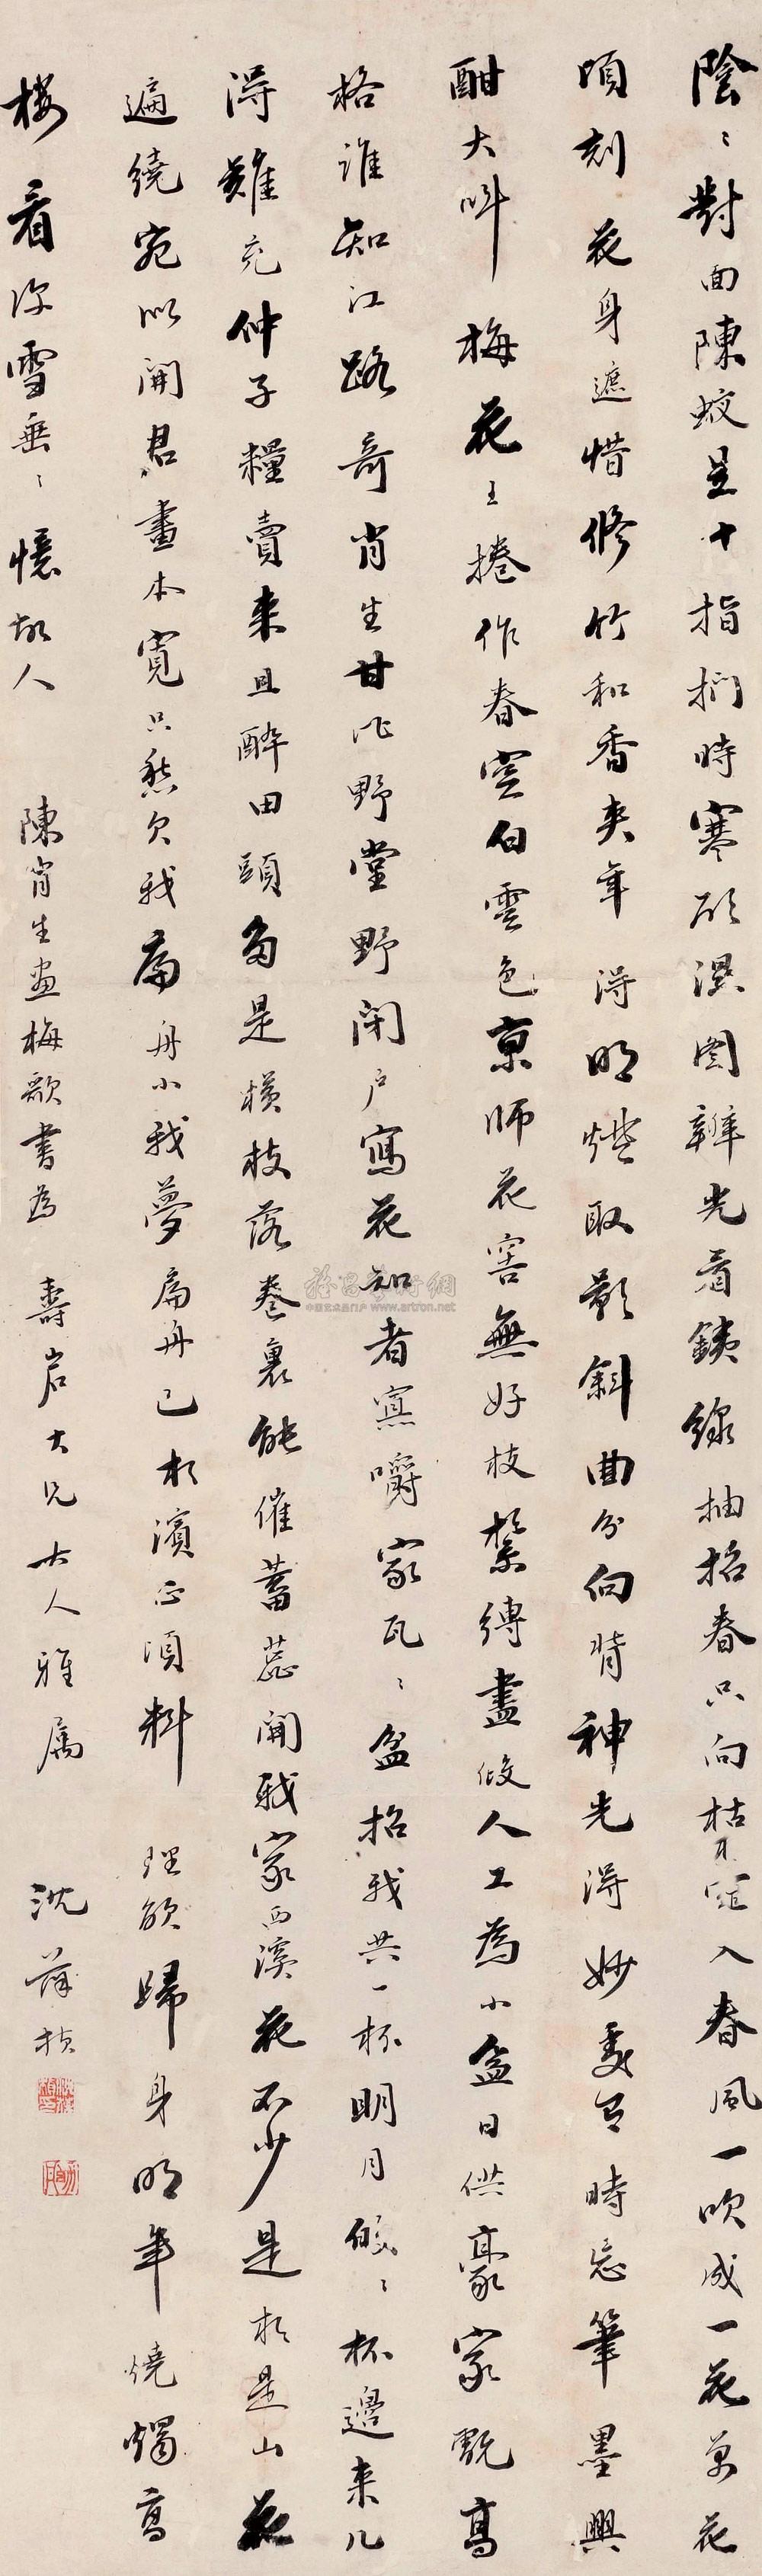 陰〻對面陳蛟是十指捫時寒欲濕圖難光看鐵線抽招春只向枯入春風一吹成一花萬花
頃刻花身遮惜修竹和香夾年得明燈取影斜曲分向背神光得妙處有時忘筆墨興
酣大叫梅花王捲作春空白雲色京師花窖無好枝縶縛盡傚人工為小盆日供豪家翫高
格誰知江路奇肖生甘作野堂野閉戶寫花知者寡嚼家瓦〻盆招我共一杯明月皎〻杯邊來几
得難充仲子糧賣來且醉田頭勾是橫枝落卷裏能催蓄蕊開我家西溪花不少是枝是山花
遍繞宛似開君畫本寬只愁欠我扁舟小我夢扁舟已水濱正須料理欲歸身明年燒燭高
樓看深雪垂〻憶故人 陳肖生画梅歌書為 壽岩大兄大人雅屬 沈葆楨
雅昌藝術網
中国艺术品门户 www.artron.net